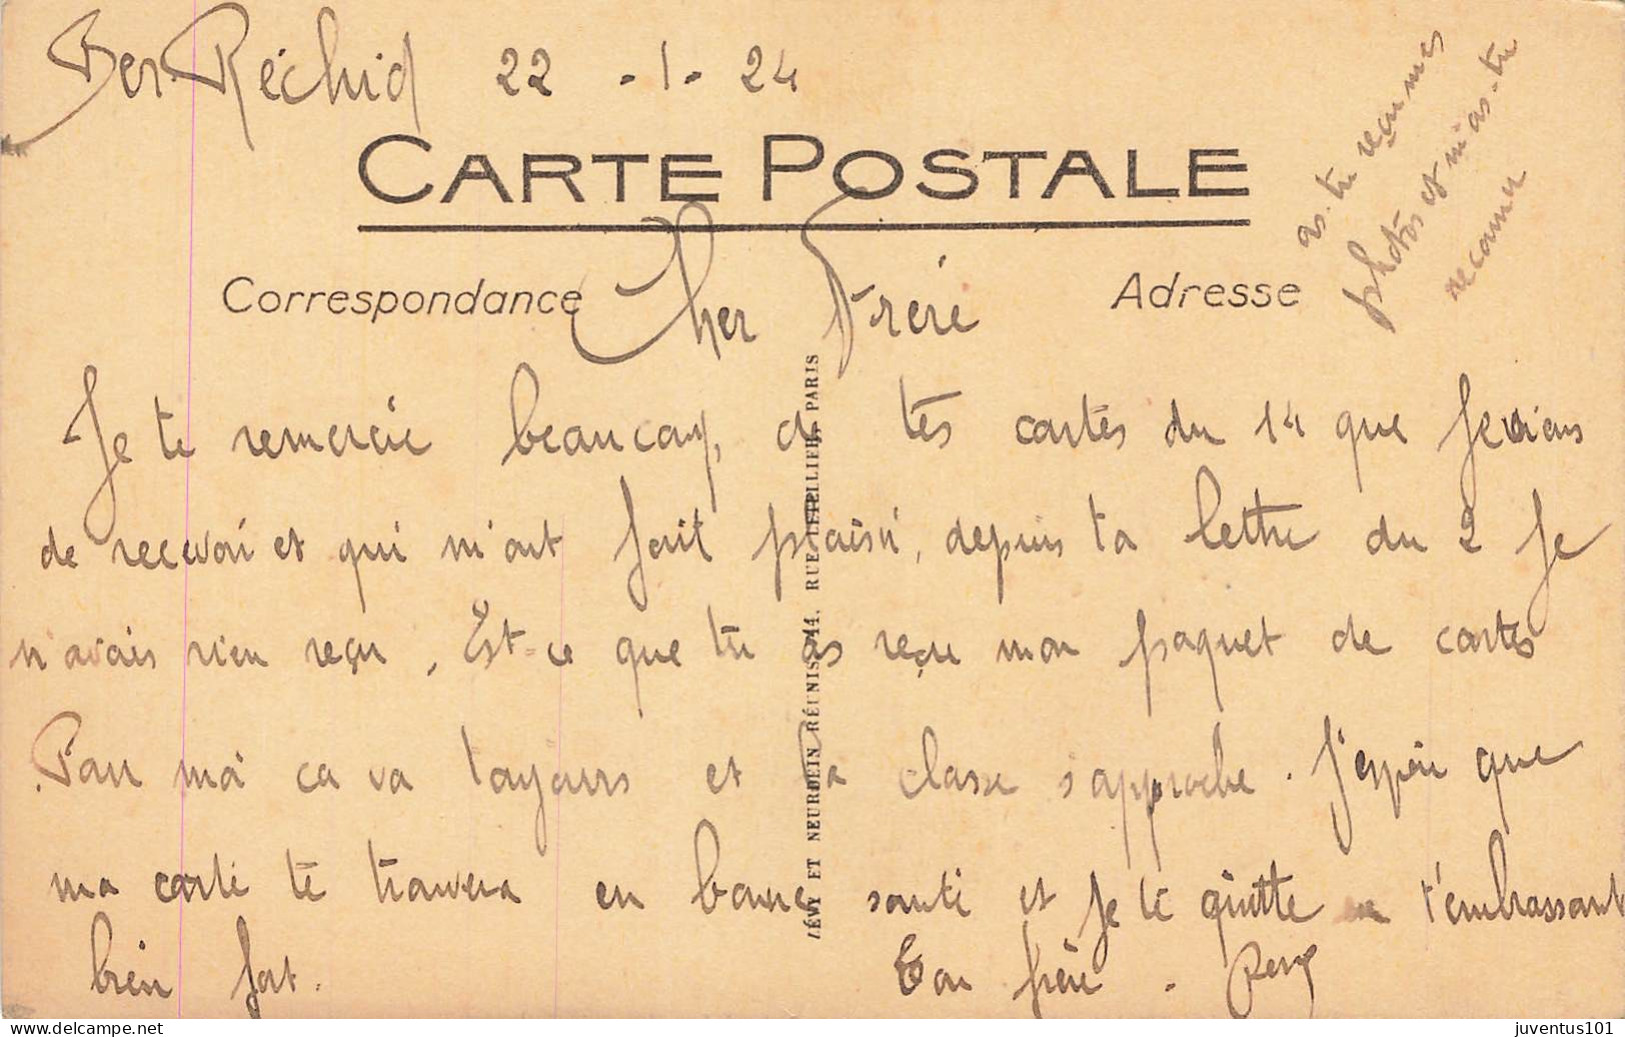 Ber Réchid 22 - 1 - 24
CARTE POSTALE
as-tu reçu mes
photos et m'as-tu
reconnu
Correspondance
Adresse
Cher Frère
Je te remercie beaucoup, de tes cartes du 14 que je viens
de recevoir et qui m'ont fait plaisir, depuis ta lettre du 2 je
n'avais rien reçu. Est-ce que tu as reçu mon paquet de cartes
Pour moi ca va toujours et la classe s'approche. J'espère que
ma carte te trouvera en bonne santé et je te quitte en t'embrassant
bien fort.
Ton frère.
LÉVY ET NEURDEIN RÉUNIS, 44, RUE LETELLIER, PARIS
delcampe.net
juventus101